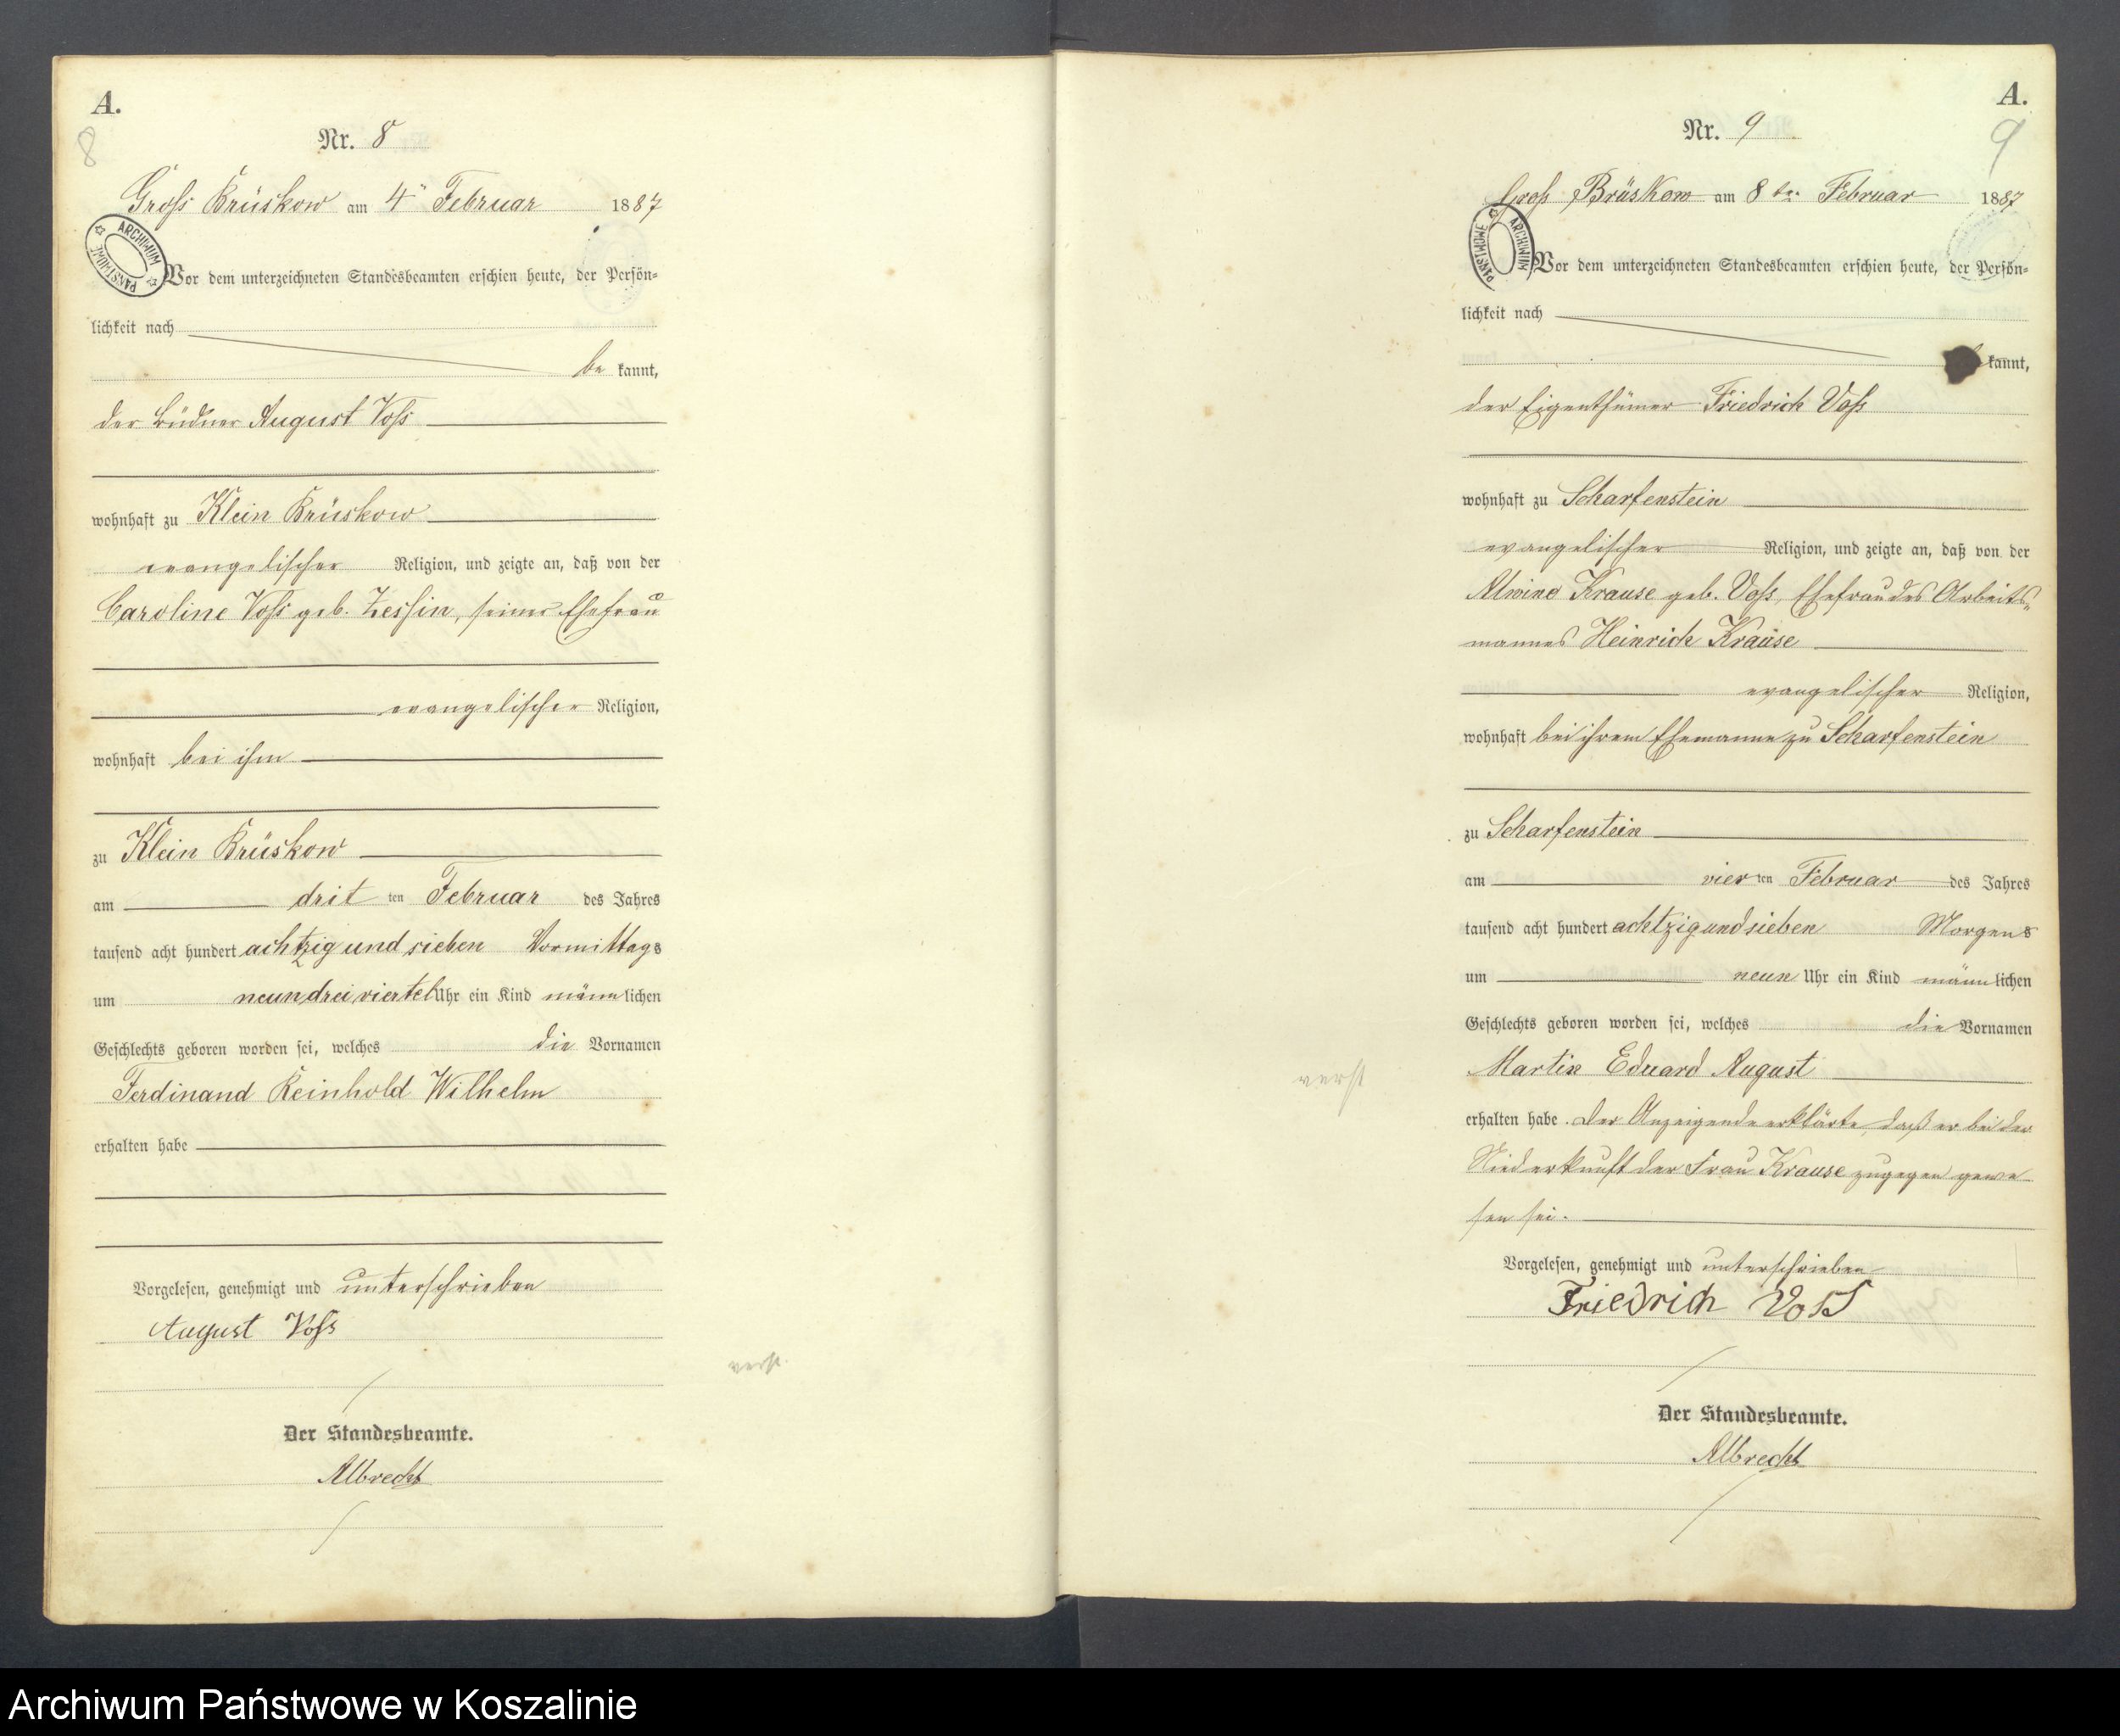 A.
8
Nr. 8
Gross Brüskow am 4ten Februar 1887
ARCHIWUM PAŃSTWOWE
Vor dem unterzeichneten Standesbeamten erschien heute, der Persön=
lichkeit nach
be kannt,
der Büdner August Voss
wohnhaft zu Klein Brüskow
evangelischer Religion, und zeigte an, daß von der
Caroline Voss geb. Zessin, seiner Ehefrau
evangelischer Religion,
wohnhaft bei ihm
zu Klein Brüskow
am drit ten Februar des Jahres
tausend acht hundert achtzig und sieben Vormittags
um neundreiviertel Uhr ein Kind männlichen
Geschlechts geboren worden sei, welches die Vornamen
Ferdinand Reinhold Wilhelm
erhalten habe
Vorgelesen, genehmigt und unterschrieben
August Voss
verst.
Der Standesbeamte.
Albrecht
A.
9
Nr. 9
Gross Brüskow am 8 ten Februar 1887
ARCHIWUM PAŃSTWOWE
Vor dem unterzeichneten Standesbeamten erschien heute, der Persön=
lichkeit nach
kannt,
der Eigenthümer Friedrich Voss
wohnhaft zu Scharfenstein
evangelischer Religion, und zeigte an, daß von der
Alwine Krause geb. Voss, Ehefrau des Arbeits=
mannes Heinrich Krause
evangelischer Religion,
wohnhaft bei ihrem Ehemanne zu Scharfenstein
zu Scharfenstein
am vier ten Februar des Jahres
tausend acht hundert achtzigundsieben Morgens
um neun Uhr ein Kind männlichen
Geschlechts geboren worden sei, welches die Vornamen
Martin Eduard August
verst
erhalten habe. Der Anzeigende erklärte, daß er bei der
Niederkunft der Frau Krause zugegen gewe
sen sei.
Vorgelesen, genehmigt und unterschrieben
Friedrich Voss
Der Standesbeamte.
Albrecht
Archiwum Państwowe w Koszalinie